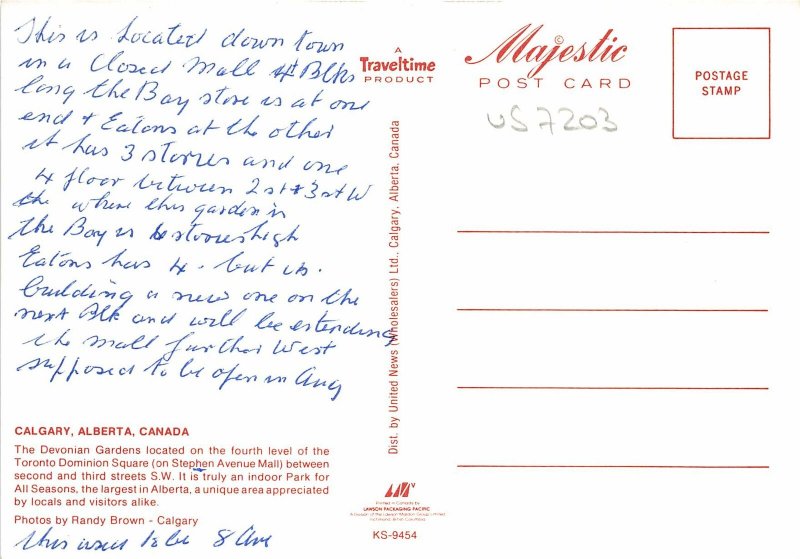 This is Located down town
in a Closed Mall 4 Blks
long the Bay store is at one
end + Eatons at the other
it has 3 stories and one
4 floor between 2 st + 3 st W
the where this garden is
the Bay is 6 stories high
Eatons has 4 - but is
building a new one on the
next Blk and will be extending
the mall further West
supposed to be open in Aug
CALGARY, ALBERTA, CANADA
The Devonian Gardens located on the fourth level of the
Toronto Dominion Square (on Stephen Avenue Mall) between
second and third streets S.W. It is truly an indoor Park for
All Seasons, the largest in Alberta, a unique area appreciated
by locals and visitors alike.
Photos by Randy Brown - Calgary
this used to be 8 Ave
A
Traveltime
PRODUCT
Dist. by United News (Wholesalers) Ltd., Calgary, Alberta, Canada
Majestic
POST CARD
US7203
POSTAGE
STAMP
Printed in Canada by
LAWSON PACKAGING PACIFIC
A division of the Lawson Mardon Group Limited
Richmond, British Columbia
KS-9454